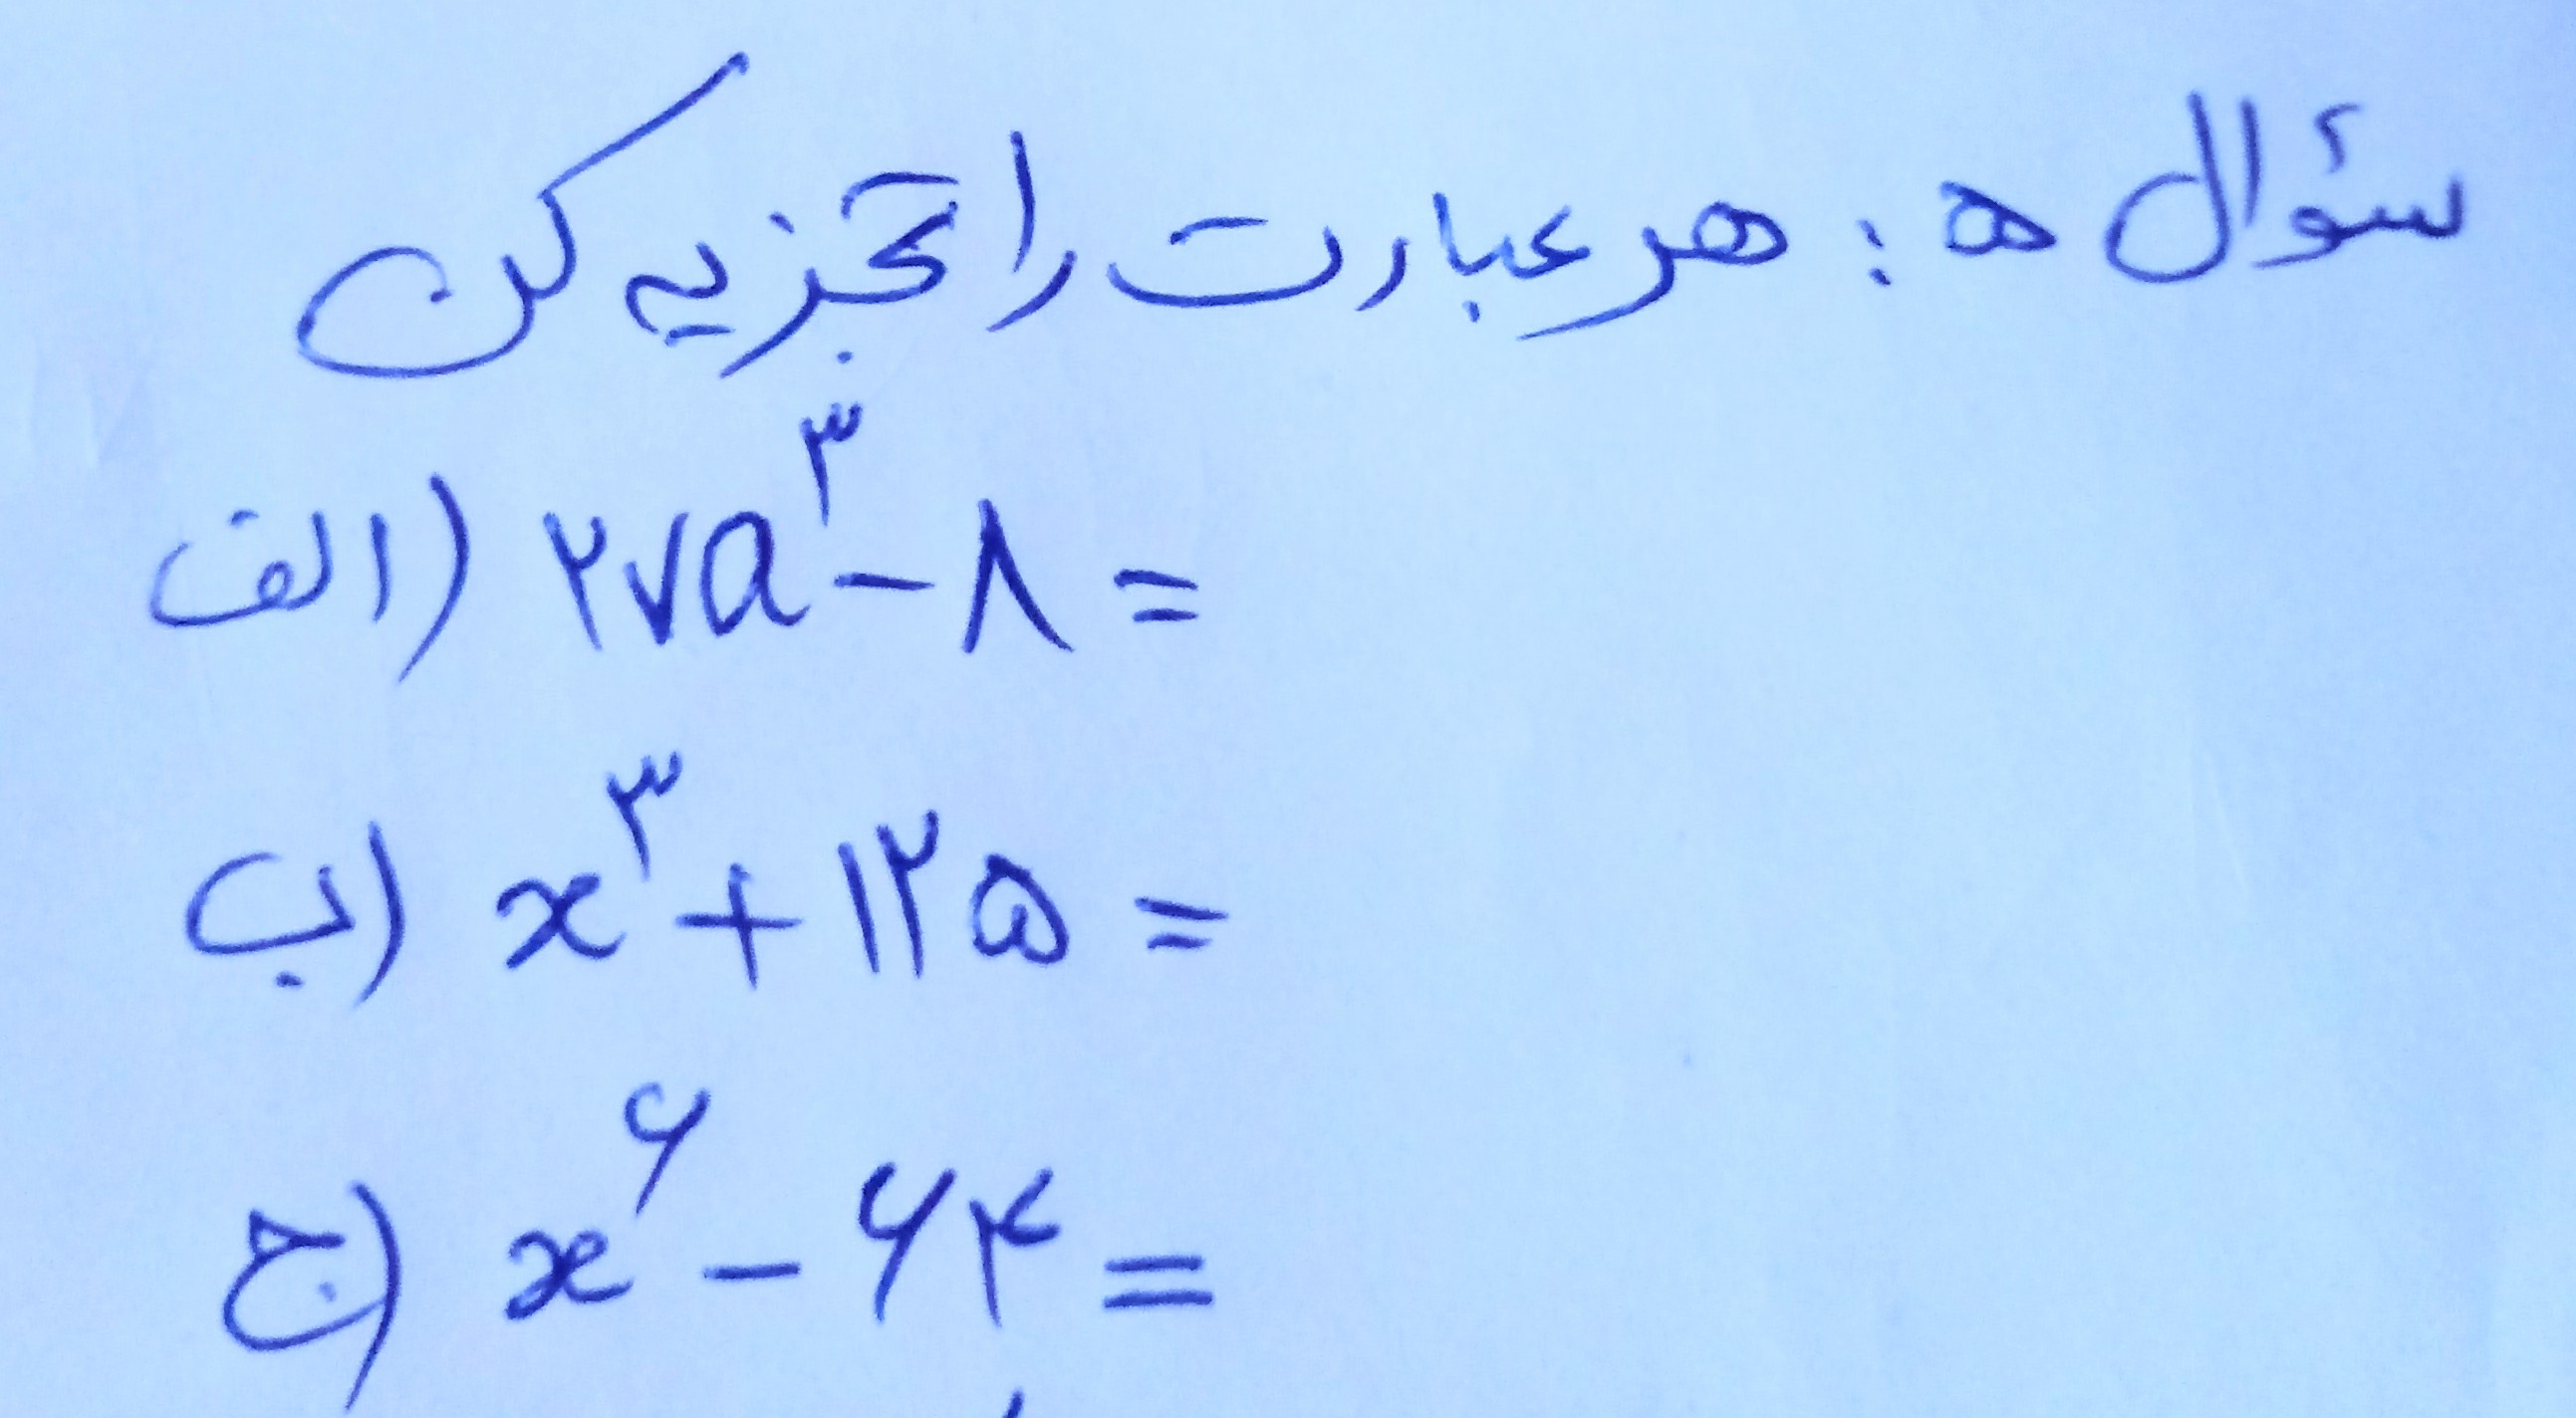 سؤال ۵: هر عبارت را تجزیه کن
الف) ۲۷a^۳ - ۸ =
ب) x^۳ + ۱۲۵ =
ج) x^۶ - ۶۴ =